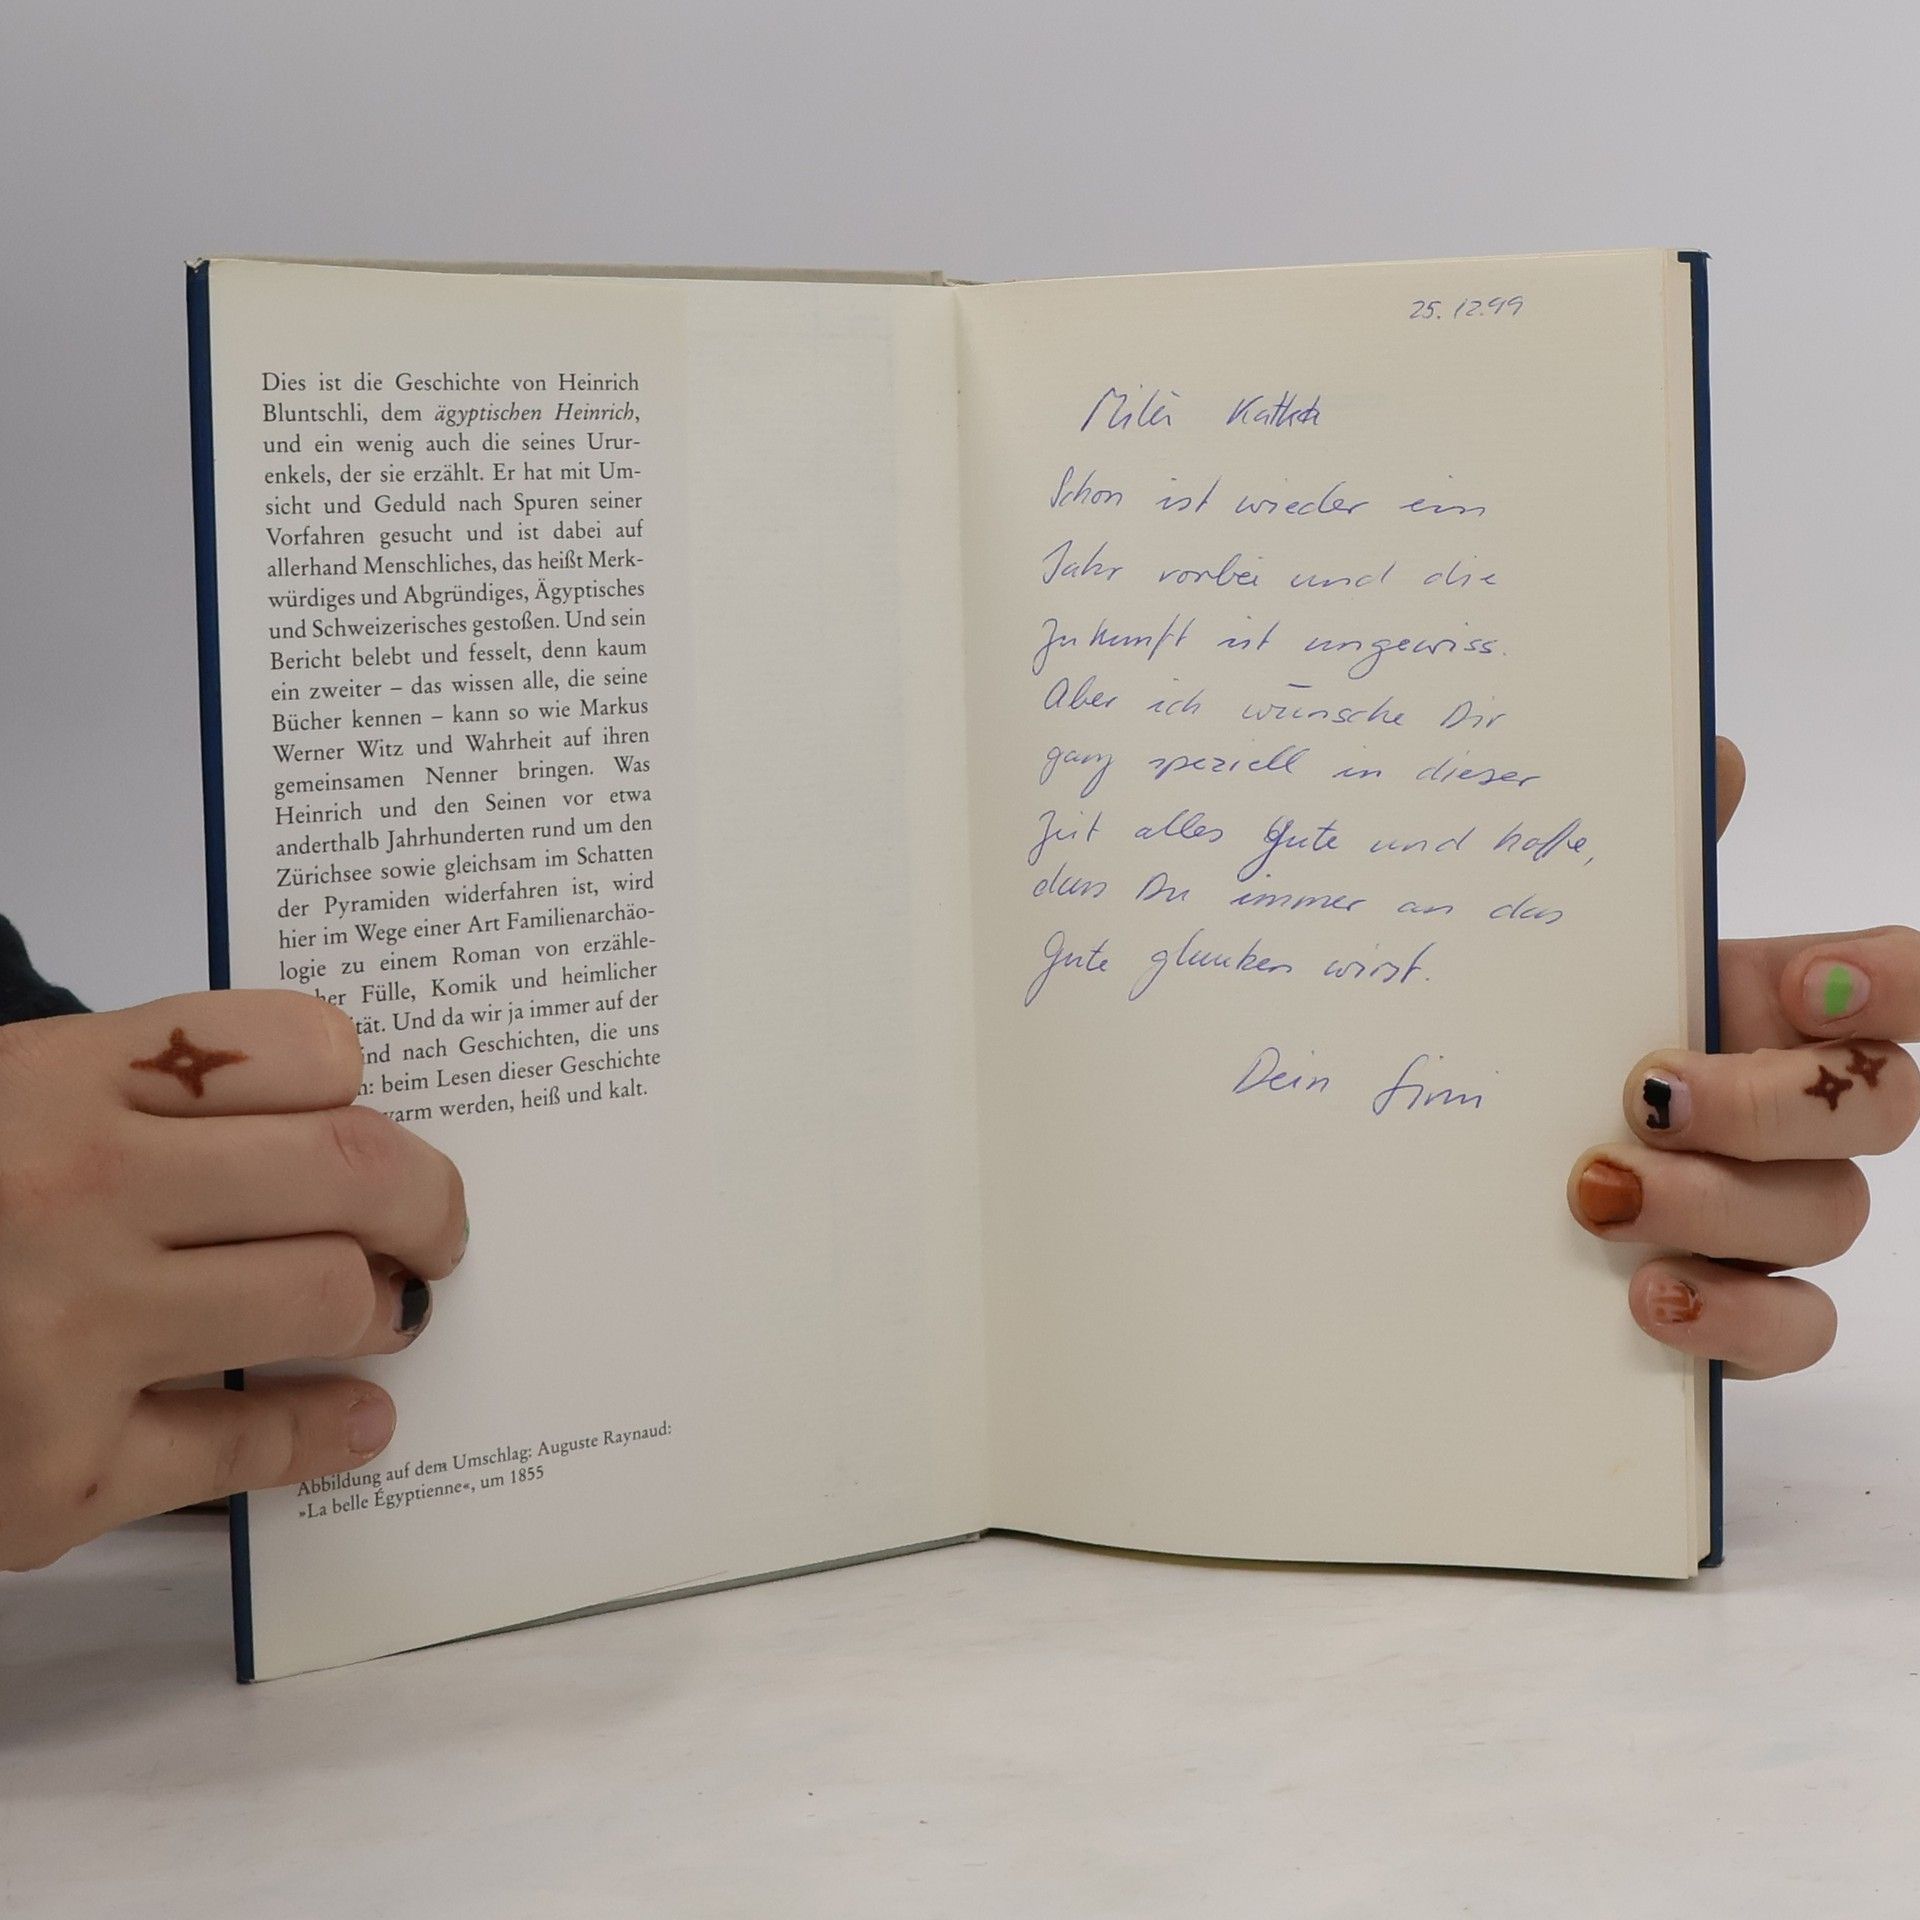 Dies ist die Geschichte von Heinrich
Bluntschli, dem ägyptischen Heinrich,
und ein wenig auch die seines Urur-
enkels, der sie erzählt. Er hat mit Um-
sicht und Geduld nach Spuren seiner
Vorfahren gesucht und ist dabei auf
allerhand Menschliches, das heißt Merk-
würdiges und Abgründiges, Ägyptisches
und Schweizerisches gestoßen. Und sein
Bericht belebt und fesselt, denn kaum
ein zweiter – das wissen alle, die seine
Bücher kennen – kann so wie Markus
Werner Witz und Wahrheit auf ihren
gemeinsamen Nenner bringen. Was
Heinrich und den Seinen vor etwa
anderthalb Jahrhunderten rund um den
Zürichsee sowie gleichsam im Schatten
der Pyramiden widerfahren ist, wird
hier im Wege einer Art Familienarchäo-
logie zu einem Roman von erzähle-
her Fülle, Komik und heimlicher
tät. Und da wir ja immer auf der
ind nach Geschichten, die uns
n: beim Lesen dieser Geschichte
warm werden, heiß und kalt.
Abbildung auf dem Umschlag: Auguste Raynaud:
»La belle Égyptienne«, um 1855
25.12.99
Schon ist wieder ein
Jahr vorbei und die
Zukunft ist ungewiss.
Aber ich wünsche Dir
ganz speziell in dieser
Zeit alles Gute und hoffe,
dass Du immer an das
Gute glauben wirst.
Dein